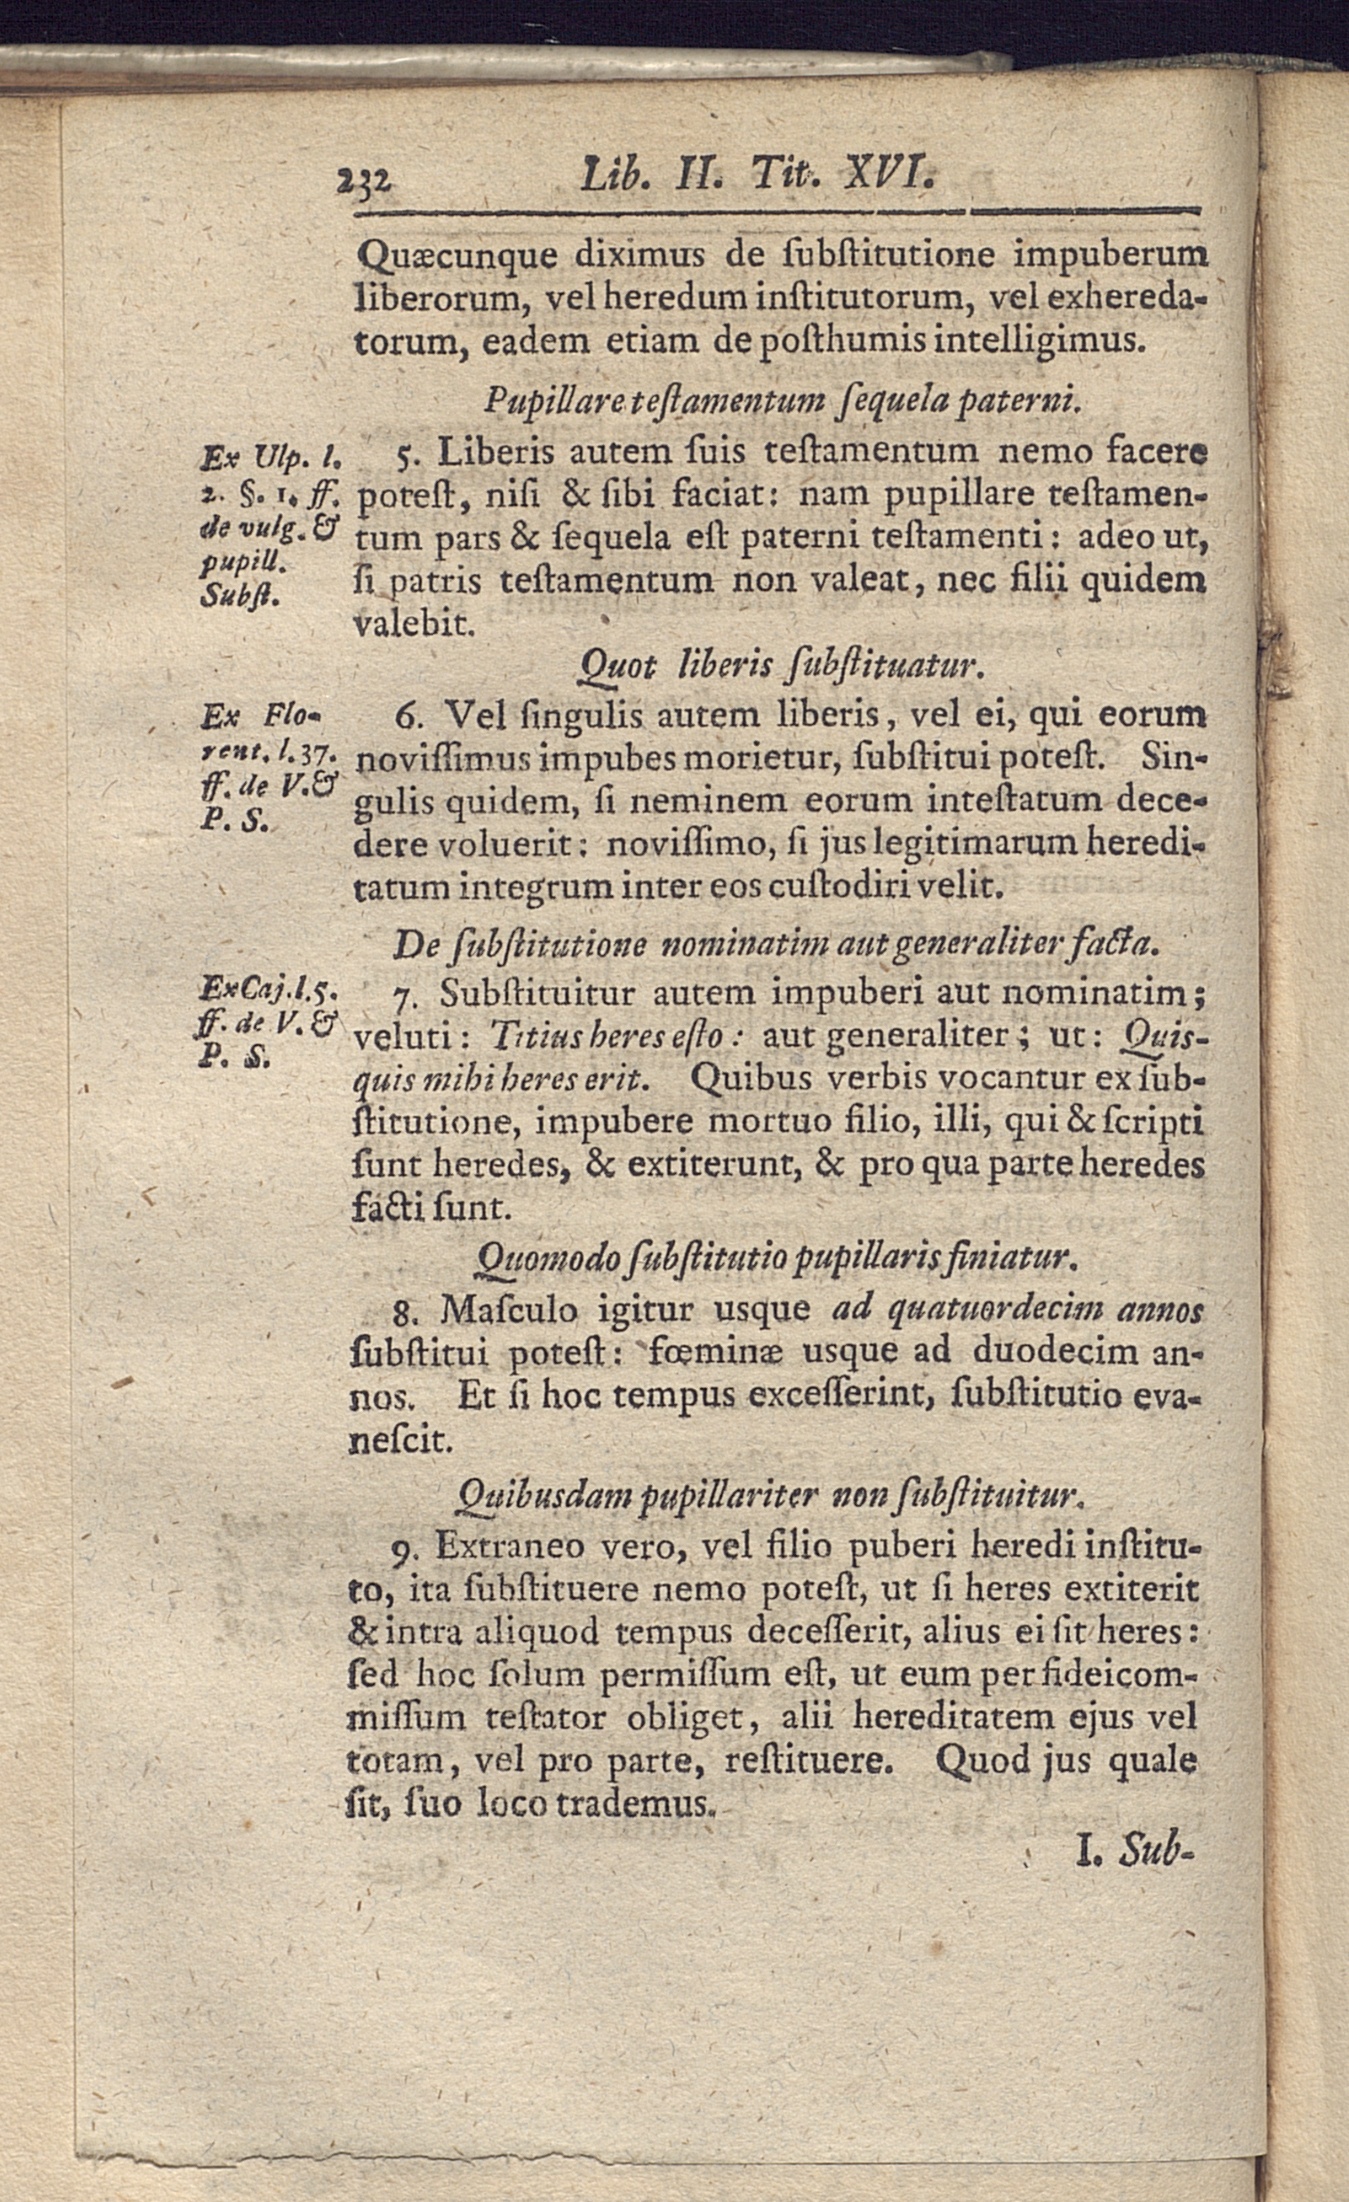 232 Lib. II. Tit. XVI.
Quæcunque diximus de ſubſtitutione impuberum
liberorum, vel heredum inſtitutorum, vel exhereda-
torum, eadem etiam de poſthumis intelligimus.
Pupillare teſtamentum ſequela paterni.
Ex Ulp. l.
2. §. 1. ff.
de vulg. &
pupill.
Subſt.
5. Liberis autem ſuis teſtamentum nemo facere
poteſt, niſi & ſibi faciat: nam pupillare teſtamen-
tum pars & ſequela eſt paterni teſtamenti: adeo ut,
ſi patris teſtamentum non valeat, nec filii quidem
valebit.
Quot liberis ſubſtituatur.
Ex Flo-
rent. l. 37.
ff. de V. &
P. S.
6. Vel ſingulis autem liberis, vel ei, qui eorum
noviſſimus impubes morietur, ſubſtitui poteſt. Sin-
gulis quidem, ſi neminem eorum inteſtatum dece-
dere voluerit: noviſſimo, ſi jus legitimarum heredi-
tatum integrum inter eos cuſtodiri velit.
De ſubſtitutione nominatim aut generaliter facta.
Ex Caj. l. 5.
ff. de V. &
P. S.
7. Subſtituitur autem impuberi aut nominatim;
veluti: Titius heres eſto: aut generaliter; ut: Quis-
quis mihi heres erit. Quibus verbis vocantur ex ſub-
ſtitutione, impubere mortuo filio, illi, qui & ſcripti
ſunt heredes, & extiterunt, & pro qua parte heredes
facti ſunt.
Quomodo ſubſtitutio pupillaris finiatur.
8. Maſculo igitur usque ad quatuordecim annos
ſubſtitui poteſt: fœminæ usque ad duodecim an-
nos. Et ſi hoc tempus exceſſerint, ſubſtitutio eva-
neſcit.
Quibusdam pupillariter non ſubſtituitur.
9. Extraneo vero, vel filio puberi heredi inſtitu-
to, ita ſubſtituere nemo poteſt, ut ſi heres extiterit
& intra aliquod tempus deceſſerit, alius ei ſit heres:
ſed hoc ſolum permiſſum eſt, ut eum per fideicom-
miſſum teſtator obliget, alii hereditatem ejus vel
totam, vel pro parte, reſtituere. Quod jus quale
ſit, ſuo loco trademus.
I. Sub-